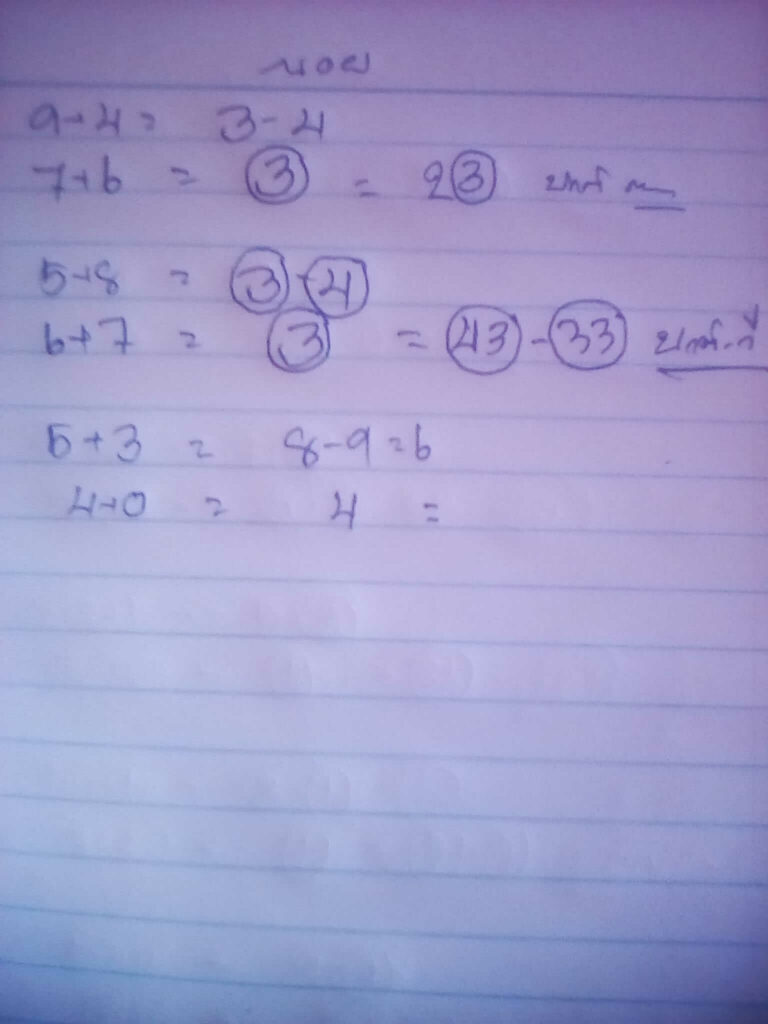 นอย
9+4= 3-4
7+6 = 3 = 23
5+8 = 3-4
6+7 = 3 = 43-33
5+3 = 8-9=6
4+0 = 4 =